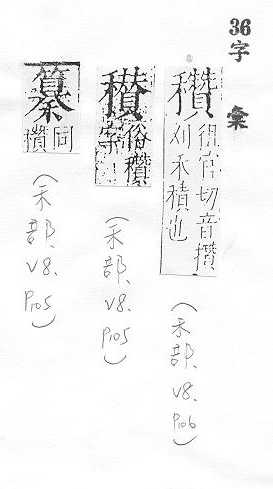 36字彙
穳
徂官切音攢
刈禾積也
(禾部.V8.P106)
俗穳
字
(禾部.V8.P105)
同
穳
(禾部.V8.P105)